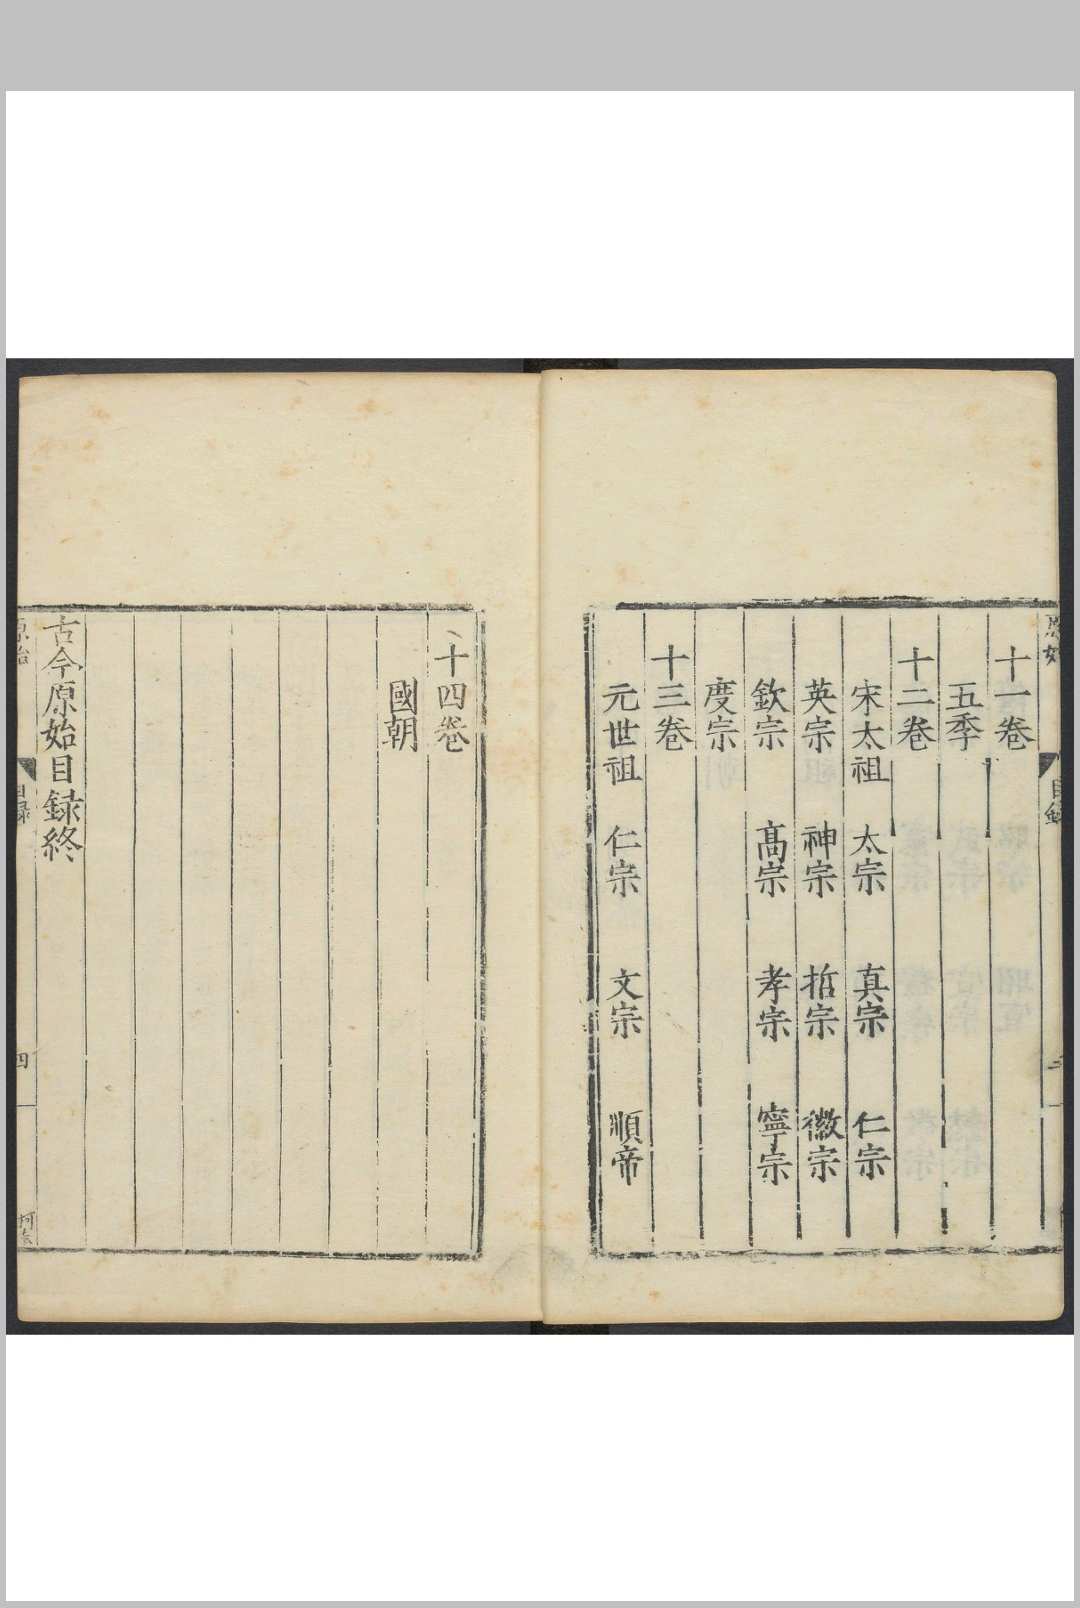 十一卷
五季
十二卷
宋太祖 太宗 真宗 仁宗
英宗 神宗 哲宗 徽宗
欽宗 高宗 孝宗 寧宗
度宗
十三卷
元世祖 仁宗 文宗 順帝
十四卷
國朝
古今原始目録終
原始 目録 四